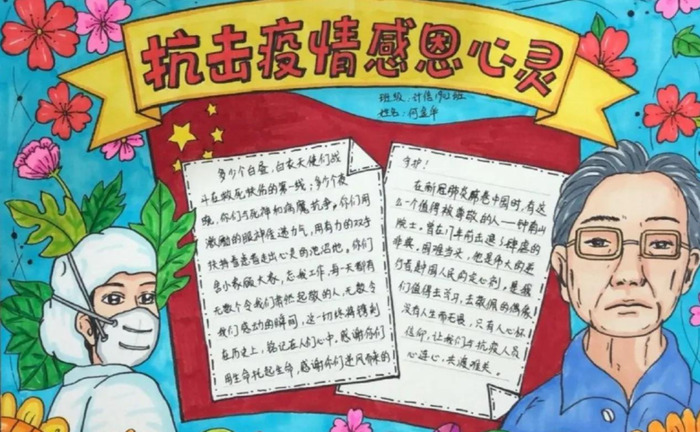 抗击疫情感恩心灵
班级:计信
姓名:何
多少个白昼,白衣天使们战
斗在救死扶伤的第一线;多少个夜
晚,你们与死神和病魔抗争。你们用
激励的眼神传递力气,用有力的双手
扶着患者走出心灵的沼泽地。你们
舍小家顾大家,忘我工作,每一天都有
无数个令我们肃然起敬的人,无数个
我们感动的瞬间,这一切终将镌刻
在历史上,铭记在人们心中,感谢你们
用生命托起生命,感谢你们逆风而
守护!
在新冠肺炎席卷中国时,有这
么一个值得被尊敬的人——钟南山
院士,曾在17年前击退了肆虐的
非典,困难当头,他是伟大的逆
行者,是中国人民的定心剂,是我
们值得去学习,去敬佩的偶像
没有人生而无畏,只有人心怀
信仰,让我们与抗疫人员
心连心,共渡难关。